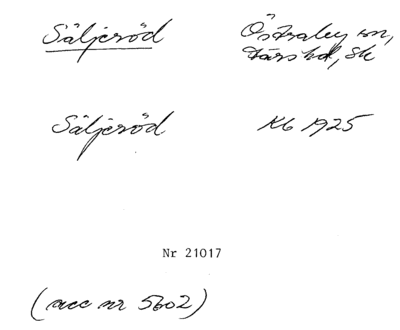 Säljeröd Östraby sn,
Färs hd, Sk
Säljeröd Kb 1925
Nr 21017
(acc nr 5602)